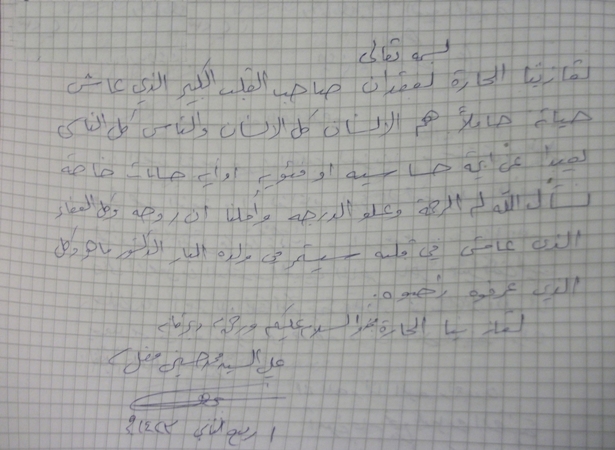 بسمه تعالى
تعازينا الحارة لفقدان صاحب القلب الكبير الذي عاش
حياته حاملاً هم الإنسان كل الإنسان والناس كل الناس
بعيداً عن أية حساسية او فئوية او أية حسابات خاصة
نسأل الله له الرحمة وعلو الدرجة وأملنا ان روحه وكل العطاء
الذي عاش في قلبه سيستمر في ولده البار الدكتور وكل
الذين عرفوه وأحبوه.
تعازينا الحارة والسلام عليكم ورحمة وبركاته
علي السيد محمد حسين فضل الله
١ ربيع الثاني